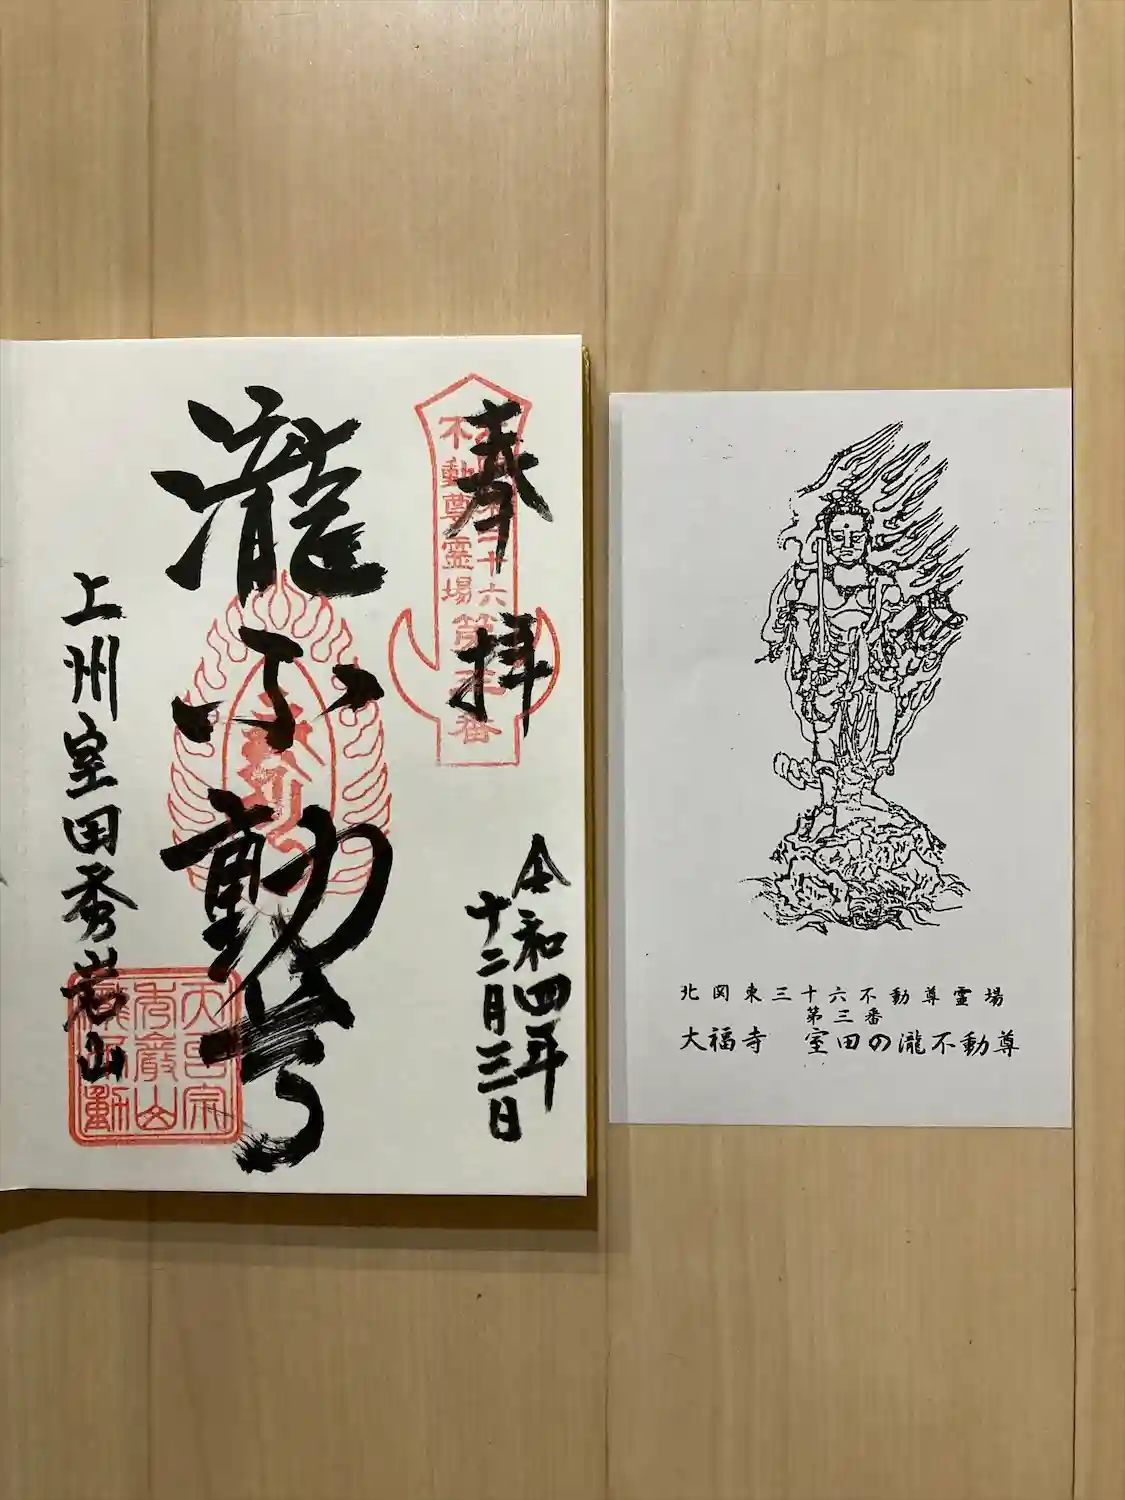 奉拝
不動尊霊場
第三番
令和四年
十二月三日
瀧不動尊
上州室田秀岩山
天台宗
秀巖山
瀧不動
北関東三十六不動尊霊場
第三番
大福寺 室田の瀧不動尊